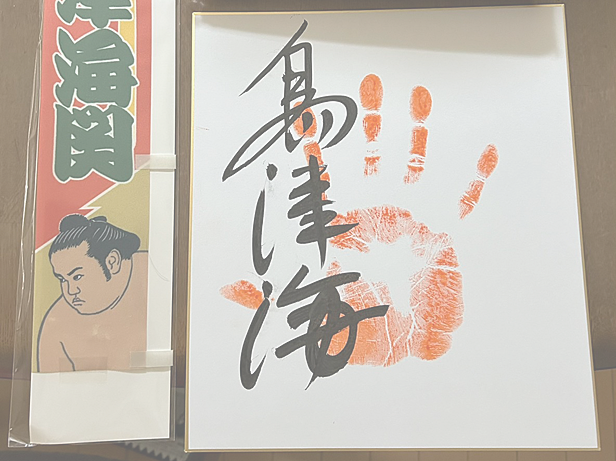 津海関
島津海